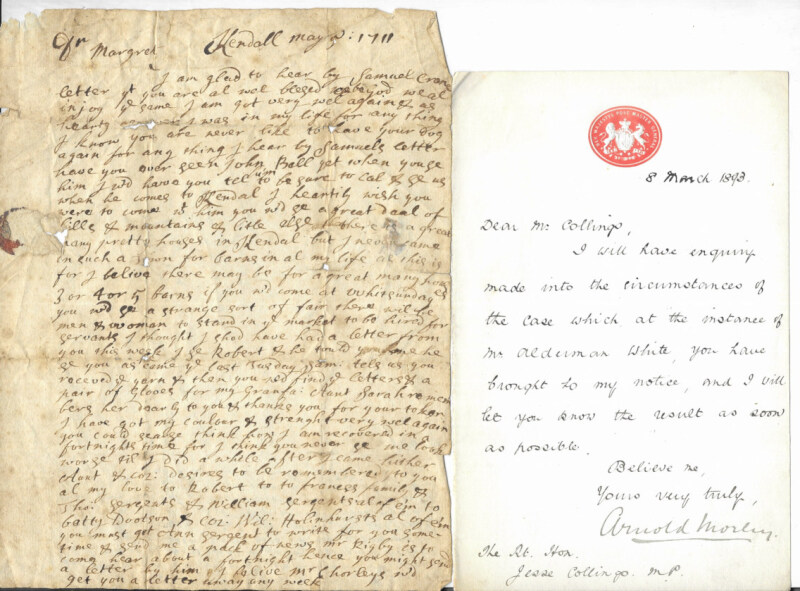 Dr Margret Kendall may 5: 1711
I am glad to hear by Samuel Cran
letter yt you are al wel blesed be god we al
injoy ye same I am got very wel again & as
hearty as ever I was in my life for any thing
I know you are never like to have your Dog
again for any thing I hear by Samuels letter
have you ever seen John Bell yet when you se
him I wd have you tel him to be sure to cal & se us
when he comes to Kendal I heartily wish you
were to come with him you wd se a great Daal of
hills & mountains & litle else there is a great
many pretty houses in Kendal but I never came
in such a town for barns in al my life as this is
for I belive there may be for a great many hous
3 or 4 or 5 barns if you wd come at Whitsunday
you wd se a strange sort of fair there wil be
men & woman to stand in ye market to be hired for
servants I thought I shod have had a letter from
you this week I se Robert & he tould me he
se you as came ye last Tusday Sam: tels us you
receved ye yarn & then you wd find ye letters & a
pair of Gloves for my Granfa: Aunt Sarah remem
bers her dearly to you & thanks you for your token
I have got my coulour & strenght very wel again
you could scarse think how I am recovered in a
fortnights time for I think you never se me look
worse then I did a while after I came hither
Aunt & coz: desires to be remembered to you
al my love to Robert to to frances family &
Tho: Sergents & William Sergents al of em to
Batty Dootson & coz: Wil: Holmhursts al of em
you must get Ann Sergent to write for you some-
time & send me a pack of news Mr Rigby is to
come hear about a fortnight hence you might send
a letter by him I belive Mr Chorleys wd
get you a letter away any week
8 March 1893.
Dear Mr Collings,
I will have enquiry
made into the circumstances of
the case which at the instance of
Mr Alderman White, you have
brought to my notice, and I will
let you know the result as soon
as possible.
Believe me,
Yours very truly,
Arnold Morley.
The Rt. Hon.
Jesse Collings. M.P.